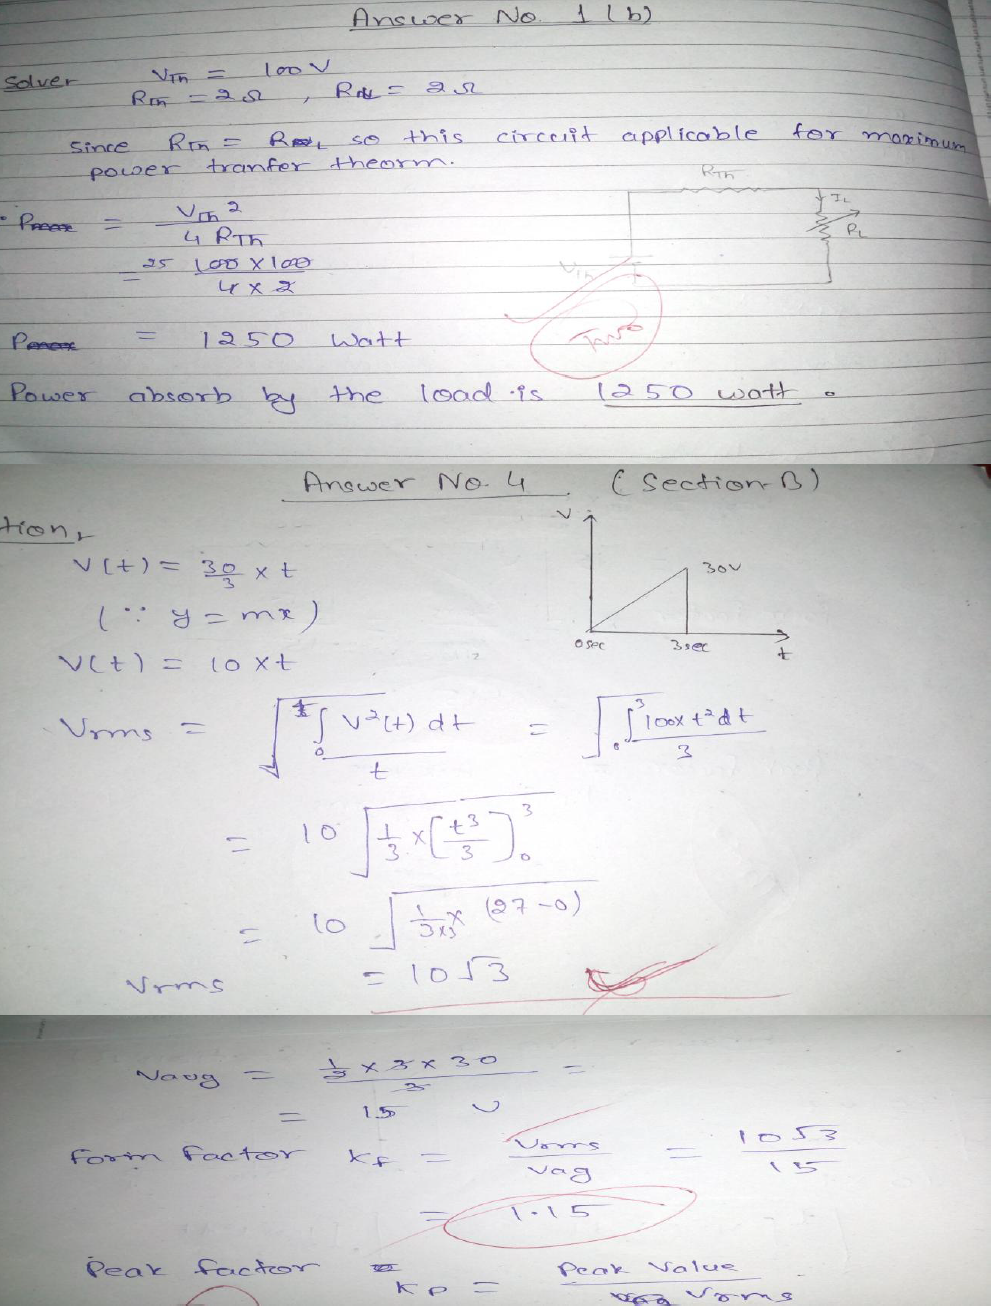 Answer No. 1 (b)
Solver VTh = 100 V
RTh = 2 Ω , RL = 2 Ω
Since RTh = RL so this circuit applicable for maximum
power tranfer theorm.
RTh
IL
RL
VTh
Pmax = VTh²
4 RTh
= 25 100 × 100
4 × 2
Pmax = 1250 Watt
Power absorb by the load is 1250 watt.
Answer No. 4 (Section B)
tion,
V
30V
0 sec 3 sec t
V(t) = 30/3 × t
(∵ y = mx)
V(t) = 10 × t
Vrms = √ ∫₀ᵗ V²(t) dt / t = √ ∫₀³ 100 × t² dt / 3
= 10 √ 1/3 × [t³/3]₀³
= 10 √ 1/3×3 × (27-0)
Vrms = 10√3
Vavg = 1/2 × 3 × 30 / 3 =
= 15 V
Form factor Kf = Vrms / Vag = 10√3 / 15
= 1.15
Peak factor
Kp = Peak Value / Vrms